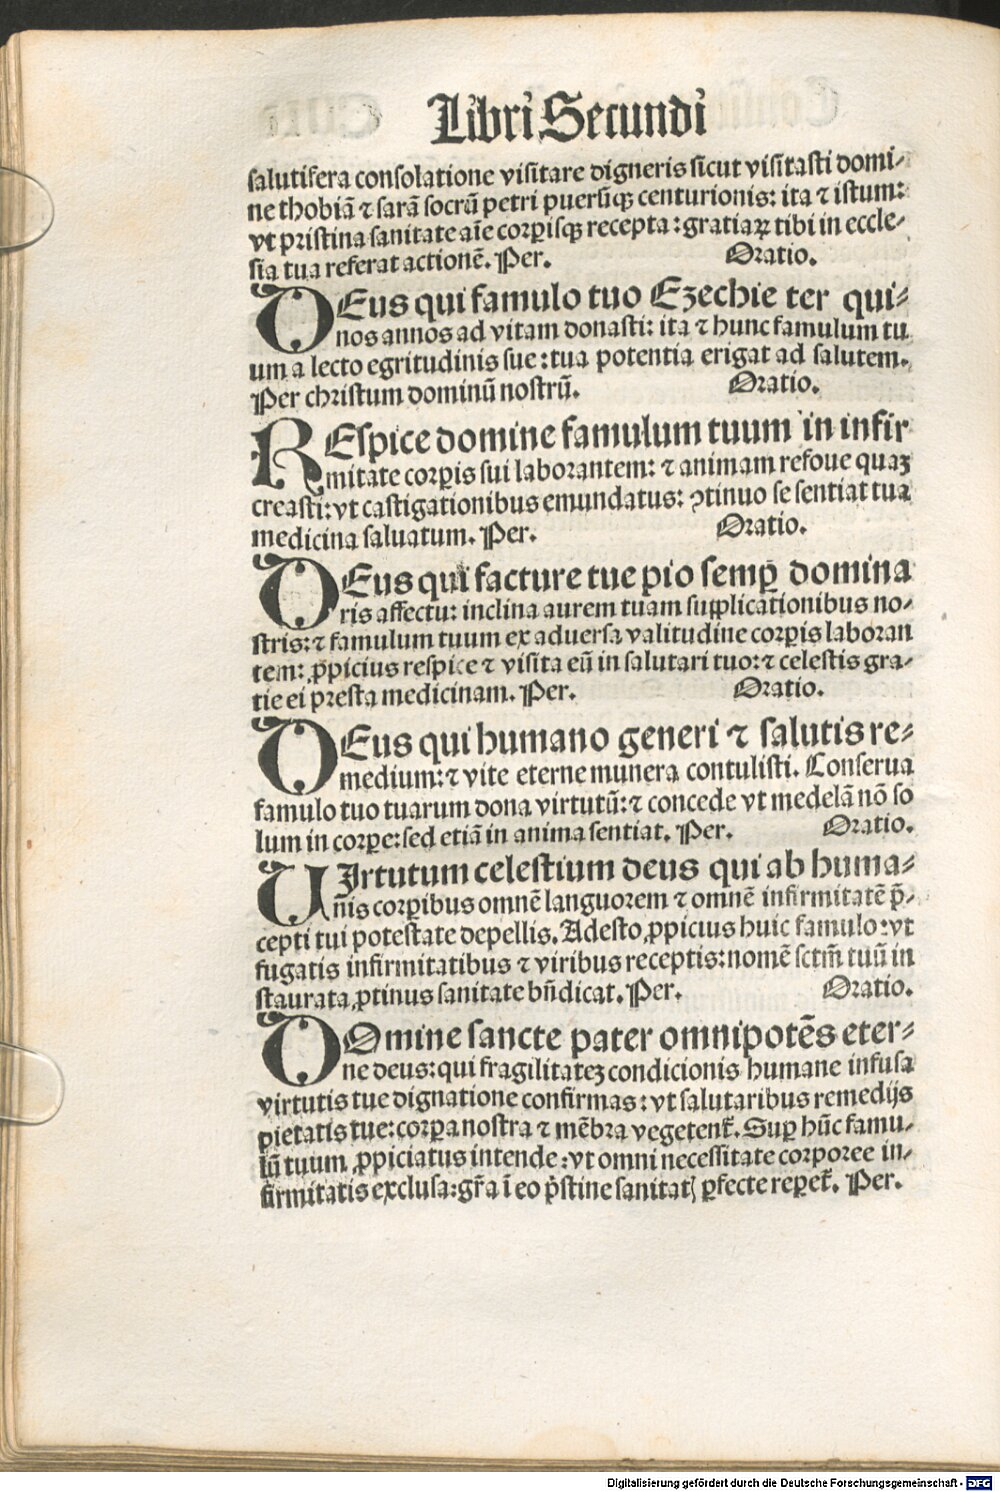 Libri Secundi
salutifera consolatione visitare digneris sicut visitasti domi-
ne thobiā ⁊ sarā socrū petri puerūqꝫ centurionis: ita ⁊ istum:
vt pristina sanitate aīe corꝑisqꝫ recepta: gratiaꝝ tibi in eccle-
sia tua referat actionē. Per. Oratio.
DEus qui famulo tuo Ezechie ter qui-
nos annos ad vitam donasti: ita ⁊ hunc famulum tu
um a lecto egritudinis sue: tua potentia erigat ad salutem.
Per christum dominū nostrū. Oratio.
REspice domine famulum tuum in infir
mitate corꝑis sui laborantem: ⁊ animam refoue quaꝫ
creasti: vt castigationibus emundatus: ꝯtinuo se sentiat tua
medicina saluatum. Per. Oratio.
DEus qui facture tue pio semꝑ domina
ris affectu: inclina aurem tuam supplicationibus no-
stris: ⁊ famulum tuum ex aduersa valitudine corꝑis laboran
tem: ꝓpicius respice ⁊ visita eū in salutari tuo: ⁊ celestis gra-
tie ei presta medicinam. Per. Oratio.
DEus qui humano generi ⁊ salutis re-
medium: ⁊ vite eterne munera contulisti. Conserua
famulo tuo tuarum dona virtutū: ⁊ concede vt medelā nō so
lum in corꝑe: sed etiā in anima sentiat. Per. Oratio.
VIrtutum celestium deus qui ab huma-
nis corꝑibus omnē languorem ⁊ omnē infirmitatē p̄-
cepti tui potestate depellis. Adesto ꝓpicius huic famulo: vt
fugatis infirmitatibus ⁊ viribus receptis: nomē sctm̄ tuū in
staurata ꝓtinus sanitate bn̄dicat. Per. Oratio.
DOmine sancte pater omnipotēs eter-
ne deus: qui fragilitateꝫ condicionis humane infusa
virtutis tue dignatione confirmas: vt salutaribus remedijs
pietatis tue: corꝑa nostra ⁊ mēbra vegetent̄. Suꝑ hūc famu-
lū tuum ꝓpiciatus intende: vt omni necessitate corporee in-
firmitatis exclusa: gr̄a ī eo p̄stine sanitatꝭ ꝑfecte reꝑet̄. Per.
Digitalisierung gefördert durch die Deutsche Forschungsgemeinschaft - DFG